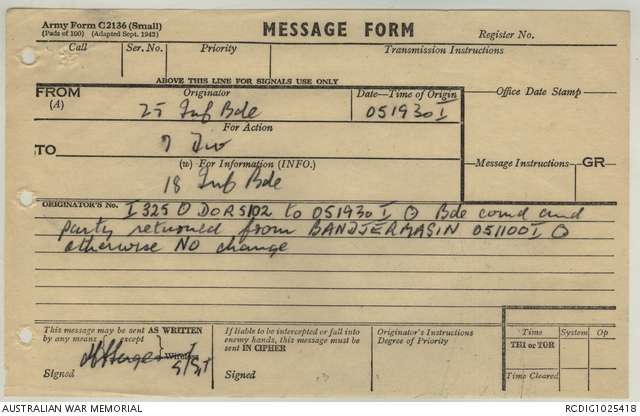 Army Form C2136 (Small)
(Pads of 100) (Adapted Sept. 1943)
MESSAGE FORM
Register No.
Call Ser. No. Priority Transmission Instructions
ABOVE THIS LINE FOR SIGNALS USE ONLY
FROM Originator Date—Time of Origin Office Date Stamp—
(A) 25 Inf Bde 051930 I
For Action
TO 7 Div
(w) For Information (INFO.) Message Instructions GR
18 Inf Bde
ORIGINATOR'S No. I 325 O DORS102 to 051930 I O Bde comd and
party returned from BANDJERMASIN 051100 I O
otherwise NO change
This message may be sent AS WRITTEN
by any means except
Wireless
Signed
If liable to be intercepted or fall into
enemy hands, this message must be
sent IN CIPHER
Signed
Originator's Instructions
Degree of Priority
Time System Op
THI or TOR
Time Cleared
AUSTRALIAN WAR MEMORIAL
RCDIG1025418